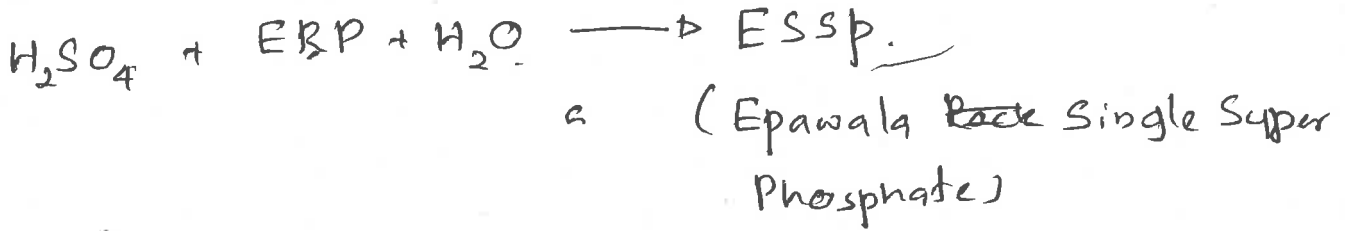 H₂SO₄ + ERP + H₂O → ESSP.
(Epawala Single Super
Phosphate)